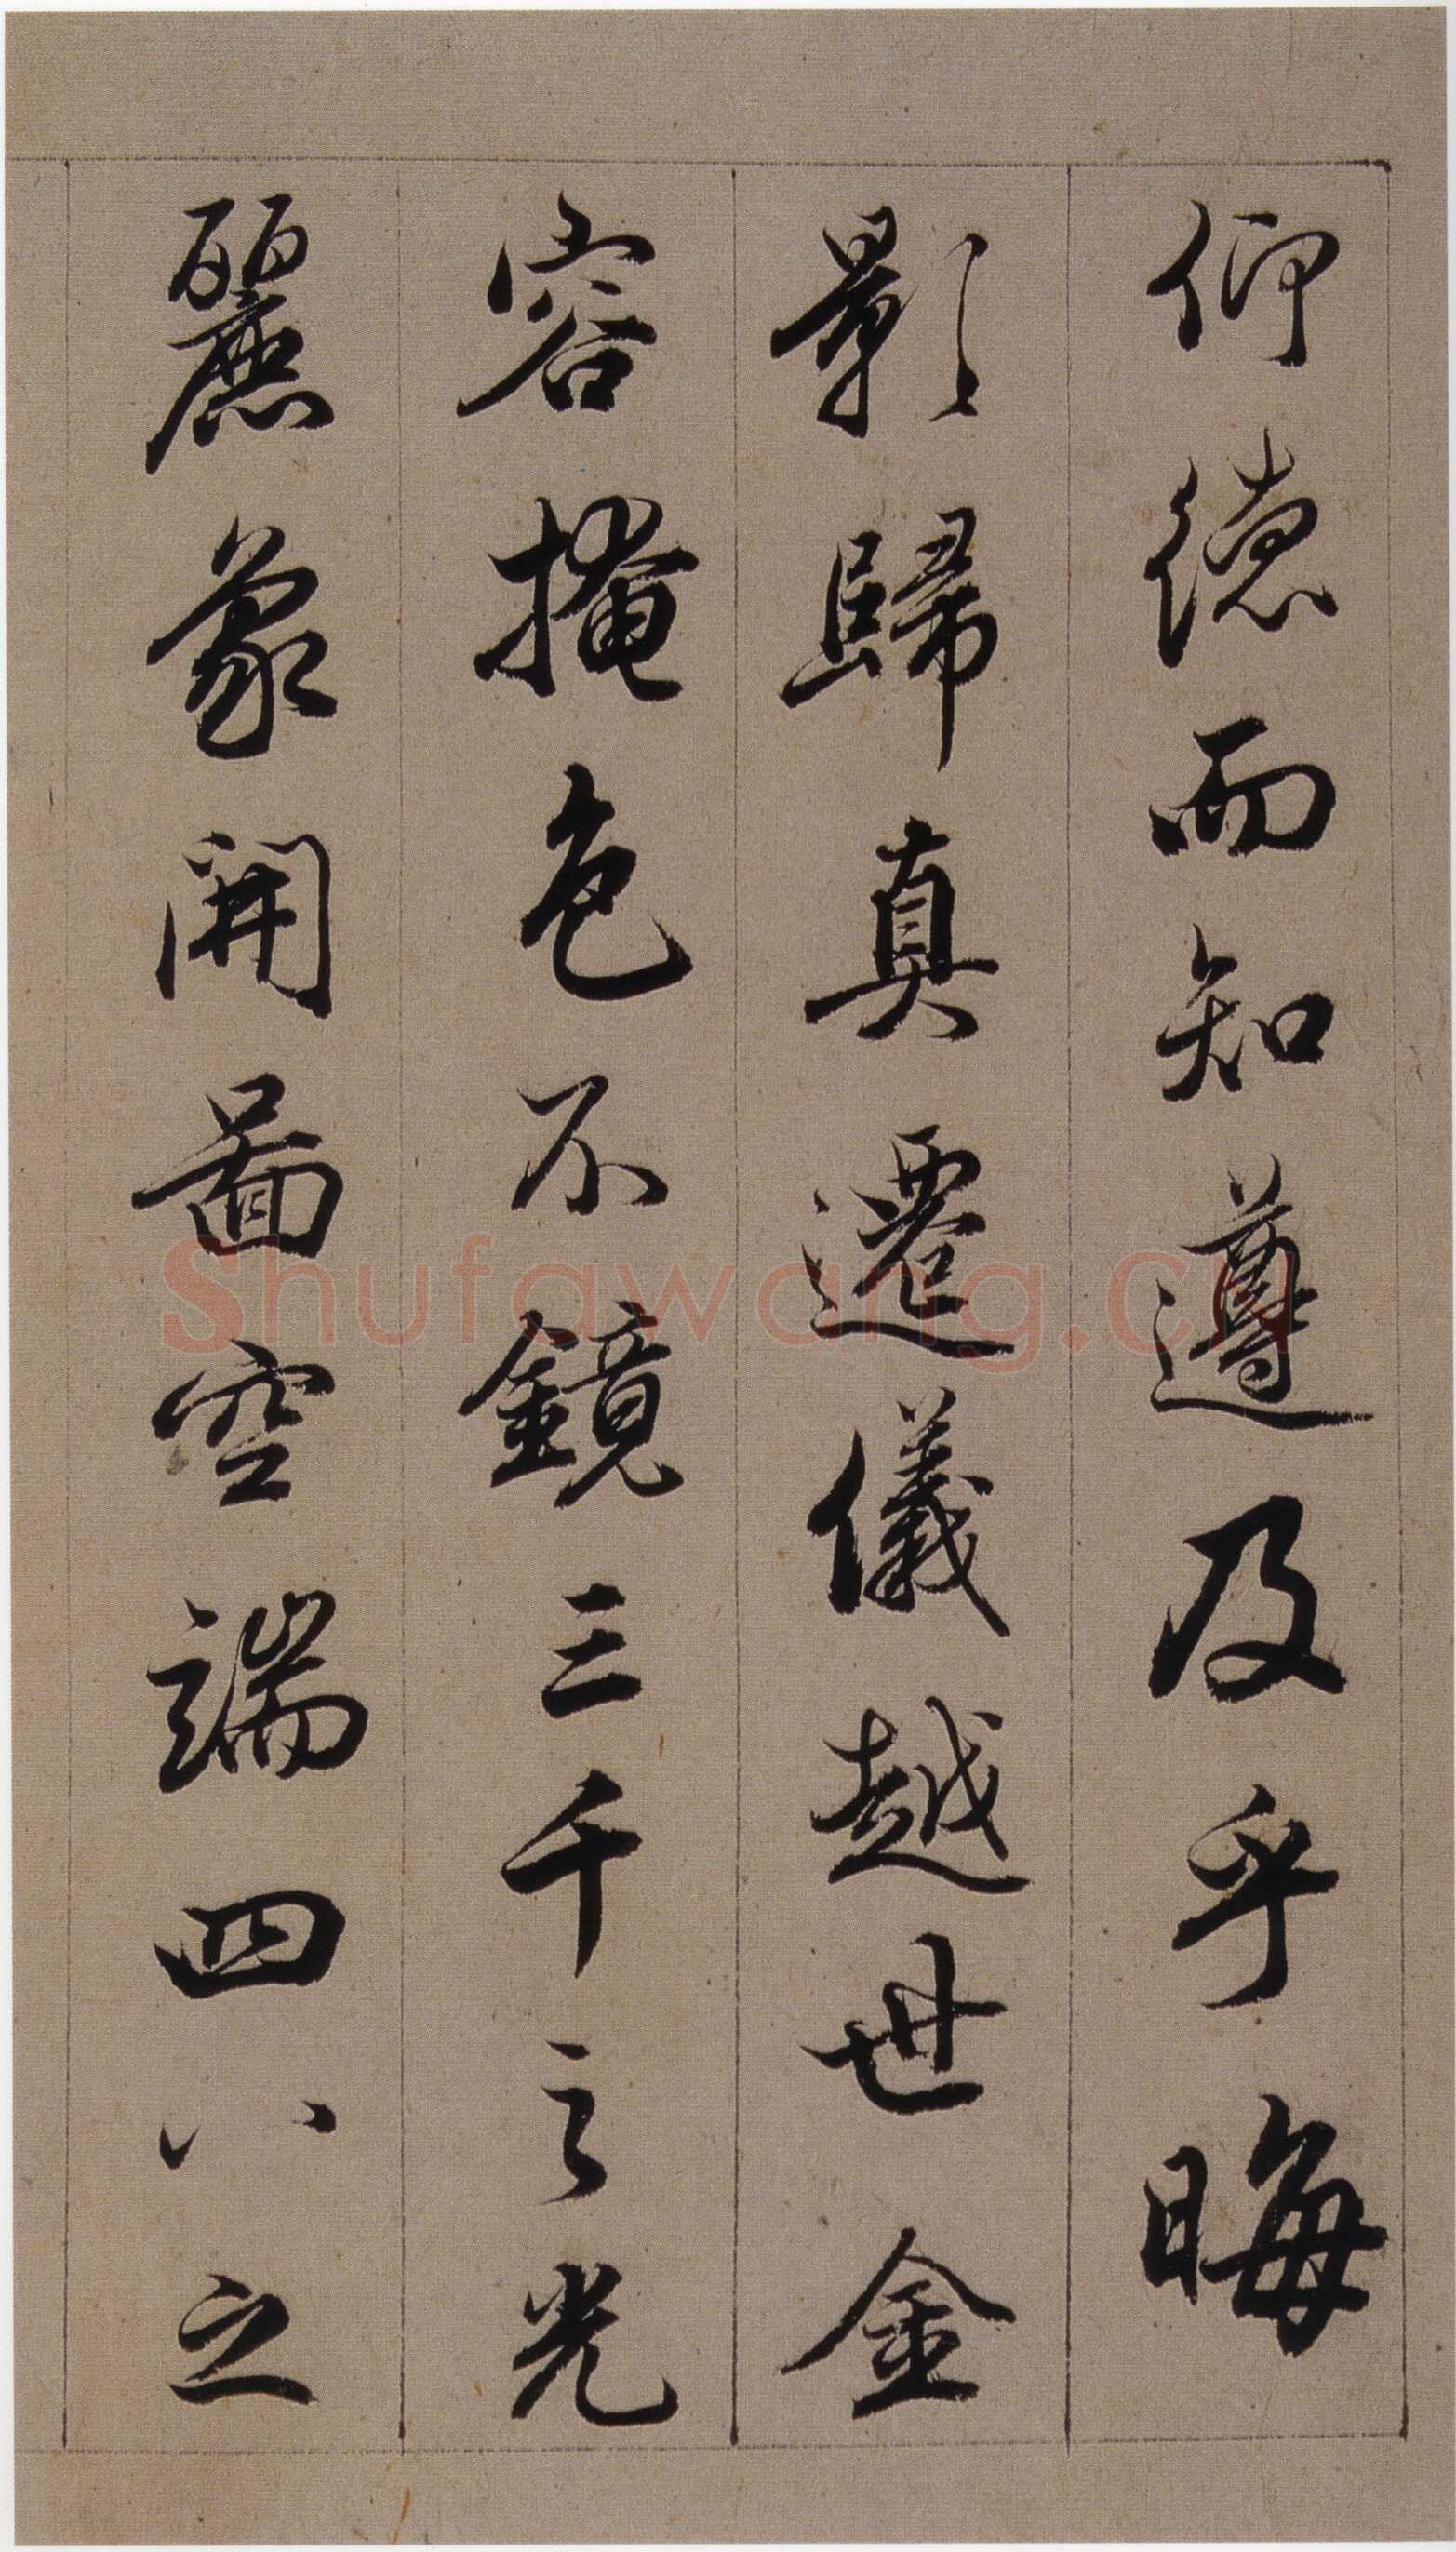 仰德而知遵及乎晦
影歸真遷儀越世金
容掩色不鏡三千之光
麗象開圖空端四八之
Shufawang.cn